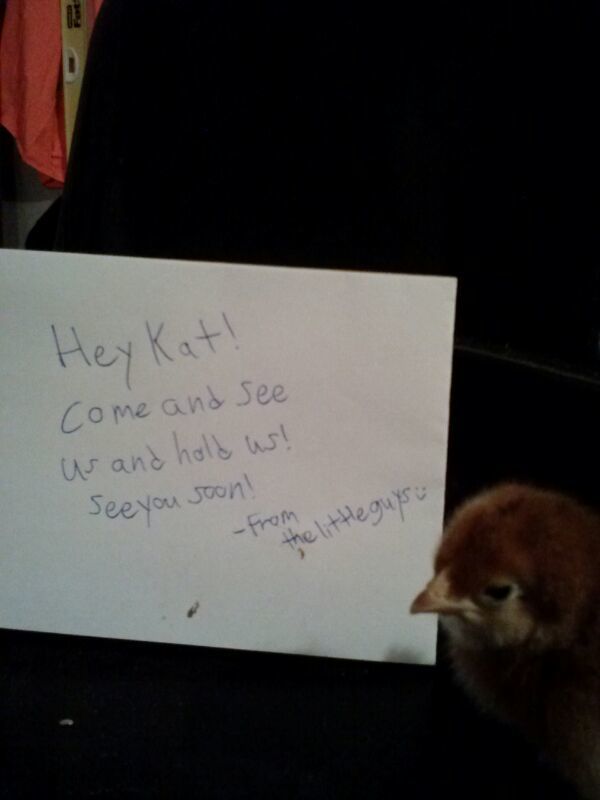 Hey Kat!
Come and see
us and hold us!
See you soon!
-From
the little guys :)